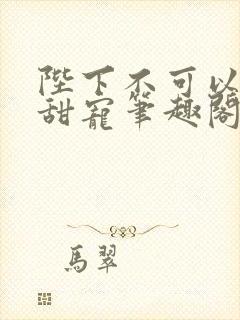 陛下不可以
甜寵筆趣閣
馬翠